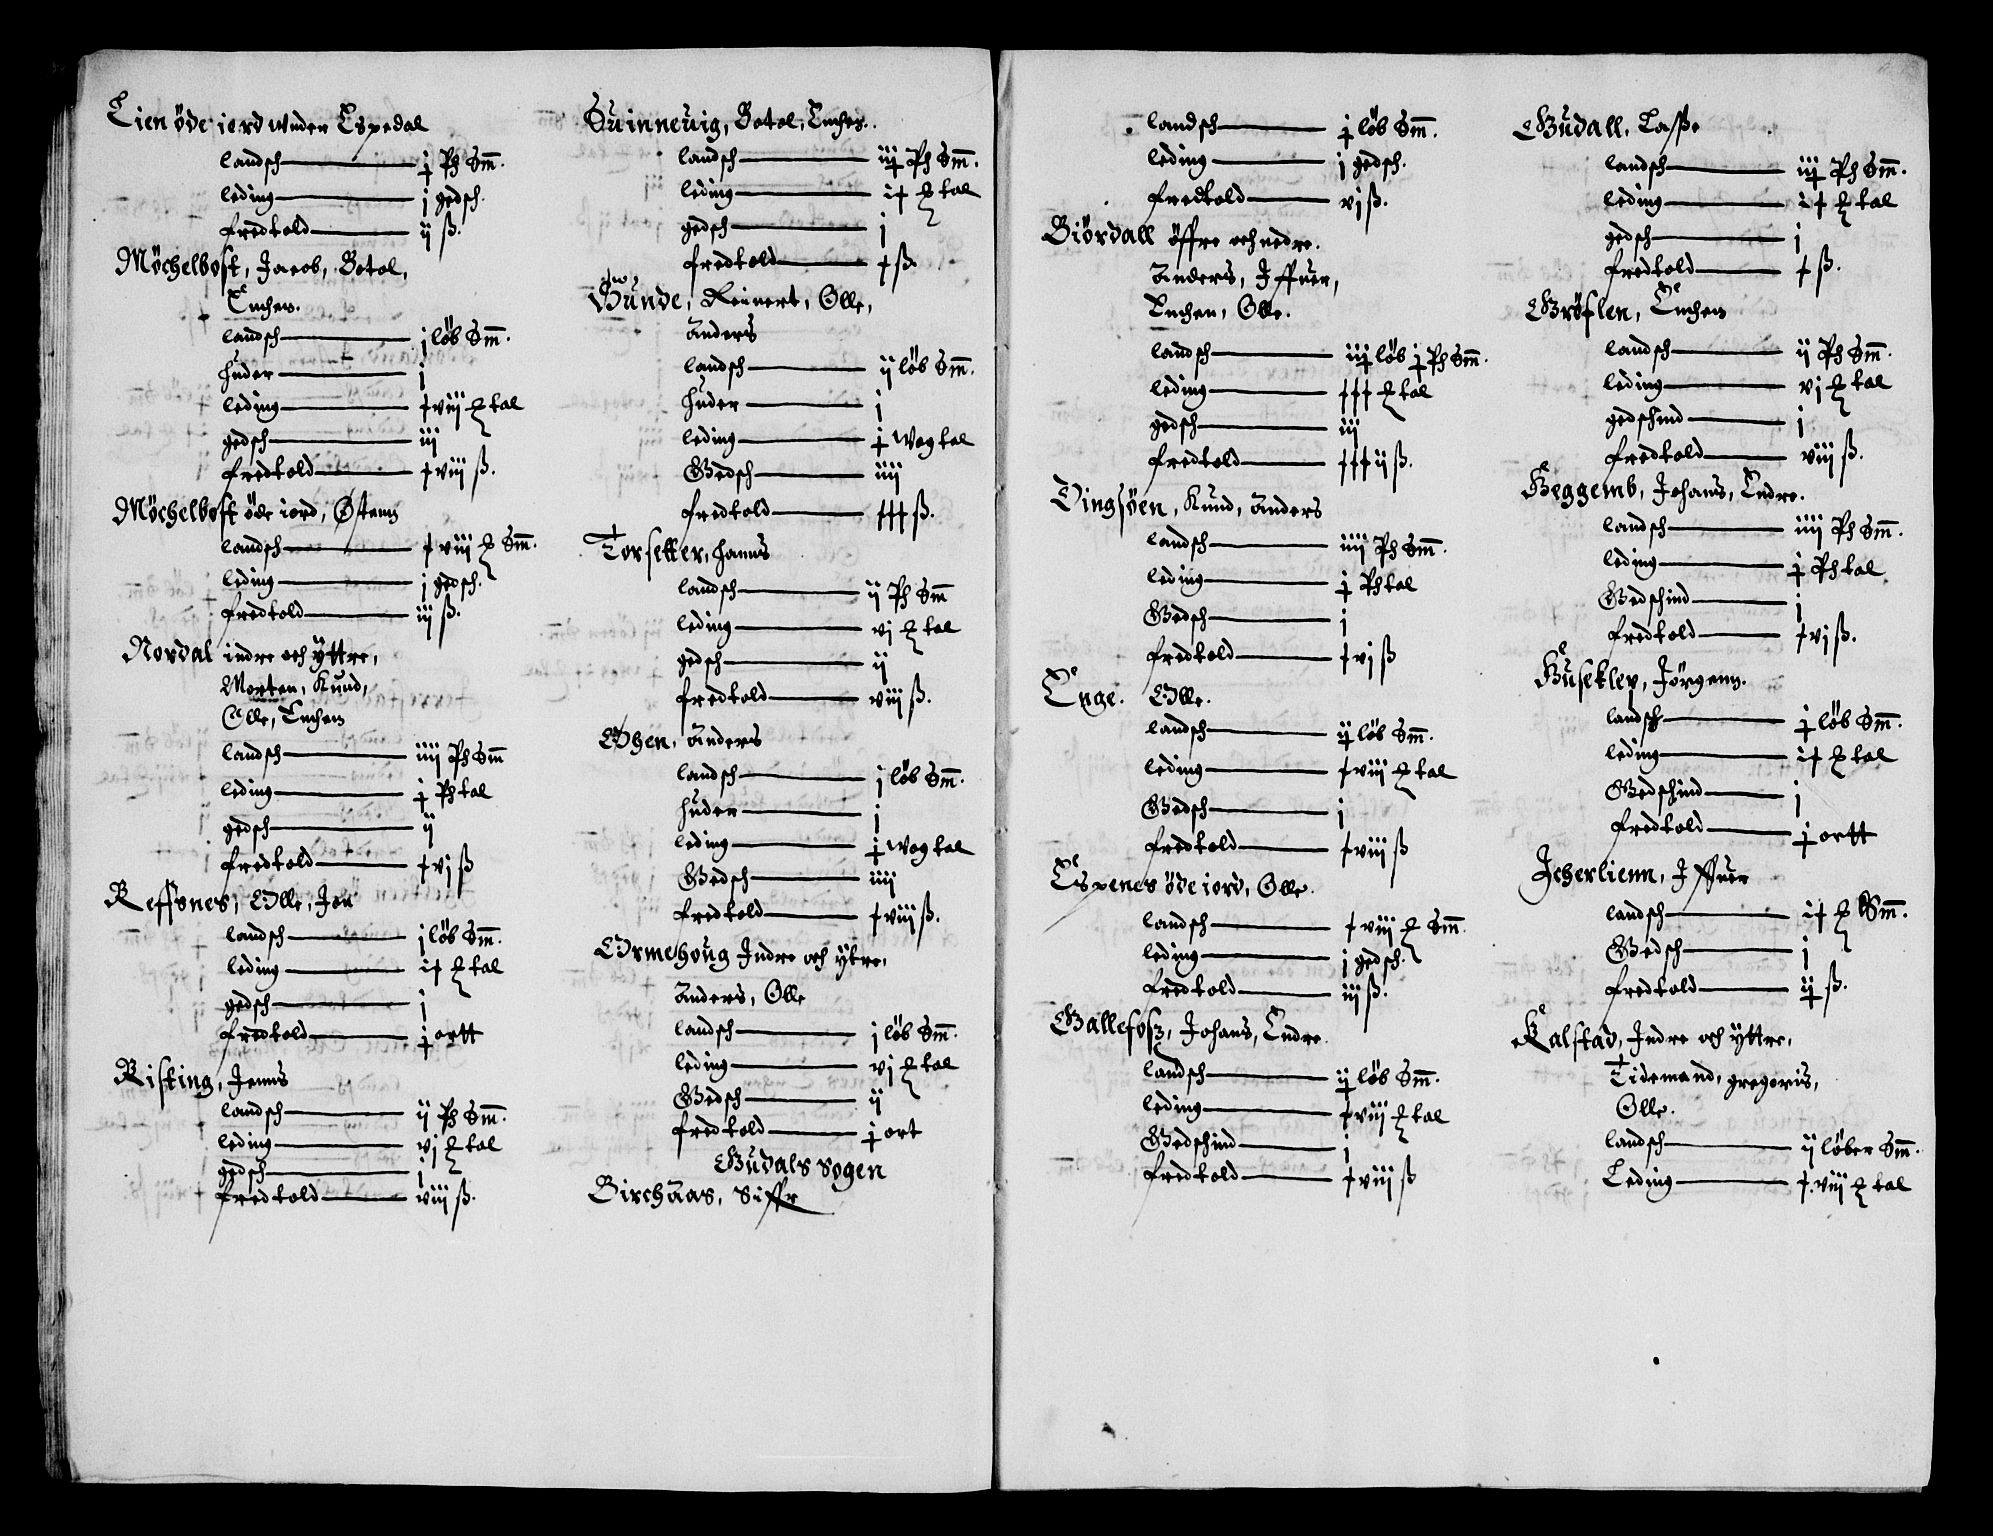 Lien öde iord wnder Espedal
landsch — j Ph Sm.
leding — j gedsch.
fredtold — ij ß.
Möchelbost, Jacob, Botol,
Enchen.
landsch — j löb Sm.
huder — j
leding — xviij tal
gedsch — iij
fredtold — xviij ß.
Möchelbost öde iord, Østenn
landsch — xviij Sm.
leding — j gedsch.
fredtold — iij ß.
Nordal indre och ÿttre,
Morten, Knud,
Olle, Enchen
landsch — iiij Ph Sm
leding — j Ph tal
gedsch — ij
fredtold — xvj ß
Reffsnes, Olle, Jon
landsch — j löb Sm.
leding — ix tal
gedsch — j
fredtold — j ortt
Risting, Jenns
landsch — ij Ph Sm.
leding — vj tal
gedsch — j
fredtold — viij ß.
Suinneuig, Botol, Enchen.
landsch — iij Ph Sm.
leding — ix tal
gedsch — j
fredtold — x ß.
Sunde, Reinert, Olle,
Anders
landsch — ij löb Sm.
huder — j
leding — j Wog tal
Gedsch — iiij
fredtold — xxx ß.
Torsetter, hanns
landsch — ij Ph Sm
leding — vj tal
gedsch — ij
fredtold — viij ß.
Øhen, Anders
landsch — j löb Sm.
huder — j
leding — j Wog tal
Gedsch — iiij
fredtold — xviij ß.
Ormehoug Indre och ÿtre,
Anders, Olle
landsch — j löb Sm.
leding — vj tal
Gedsch — ij
fredtold — j ort
Gudals sogen
Birchaas, Siffr
landsch — j löb Sm.
leding — j gedsch.
fredtold — vj ß.
Biördall öffre och nedre.
Anders, Iffuer,
Enchen, Olle.
landsch — iij löb j Ph Sm.
leding — xxx tal
gedsch — iij
fredtold — xxxij ß.
Dingsöen, Knud, Anders
landsch — iiij Ph Sm.
leding — j Ph tal
Gedsch — j
fredtold — xvj ß
Enge. Olle.
landsch — ij löb Sm.
leding — xviij tal
Gedsch — j
fredtold — xviij ß
Espenes öde iord, Olle.
landsch — xviij Sm.
leding — j gedsch.
fredtold — iij ß.
Gallefosz, Johans, Endre
landsch — ij löb Sm.
leding — xviij tal
Gedschind — j
fredtold — xviij ß
Gudall, Lasse
landsch — iij Ph Sm.
leding — ix tal
gedsch — j
fredtold — x ß.
Gröslen, Enchen
landsch — ij Ph Sm.
leding — vj tal
gedschind — j
fredtold — viij ß.
Heggemb, Johans, Endre.
landsch — iiij Ph Sm.
leding — j Ph tal
Gedschind — j
fredtold — xvj ß.
Huseklep, Jörgenn.
landsch — j löb Sm.
leding — ix tal
Gedschind — j
fredtold — j ortt
Icherlienn, Iffuer
landsch — ix Sm.
Gedsch — j
fredtold — ij ß.
Kalstad, Indre och ÿttre,
Tidemand, gregoris,
Olle.
landsch — ij löber Sm.
Leding — x.viij tal